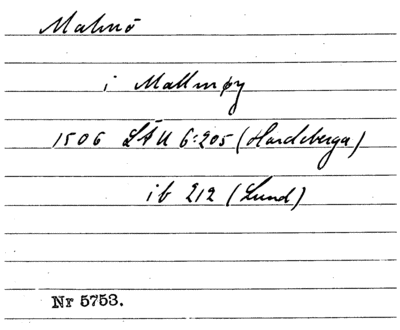 Malmö
i Mallmøy
1506 LÄU 6:205 (Hardeberga)
ib 212 (Lund)
Nr 5753.